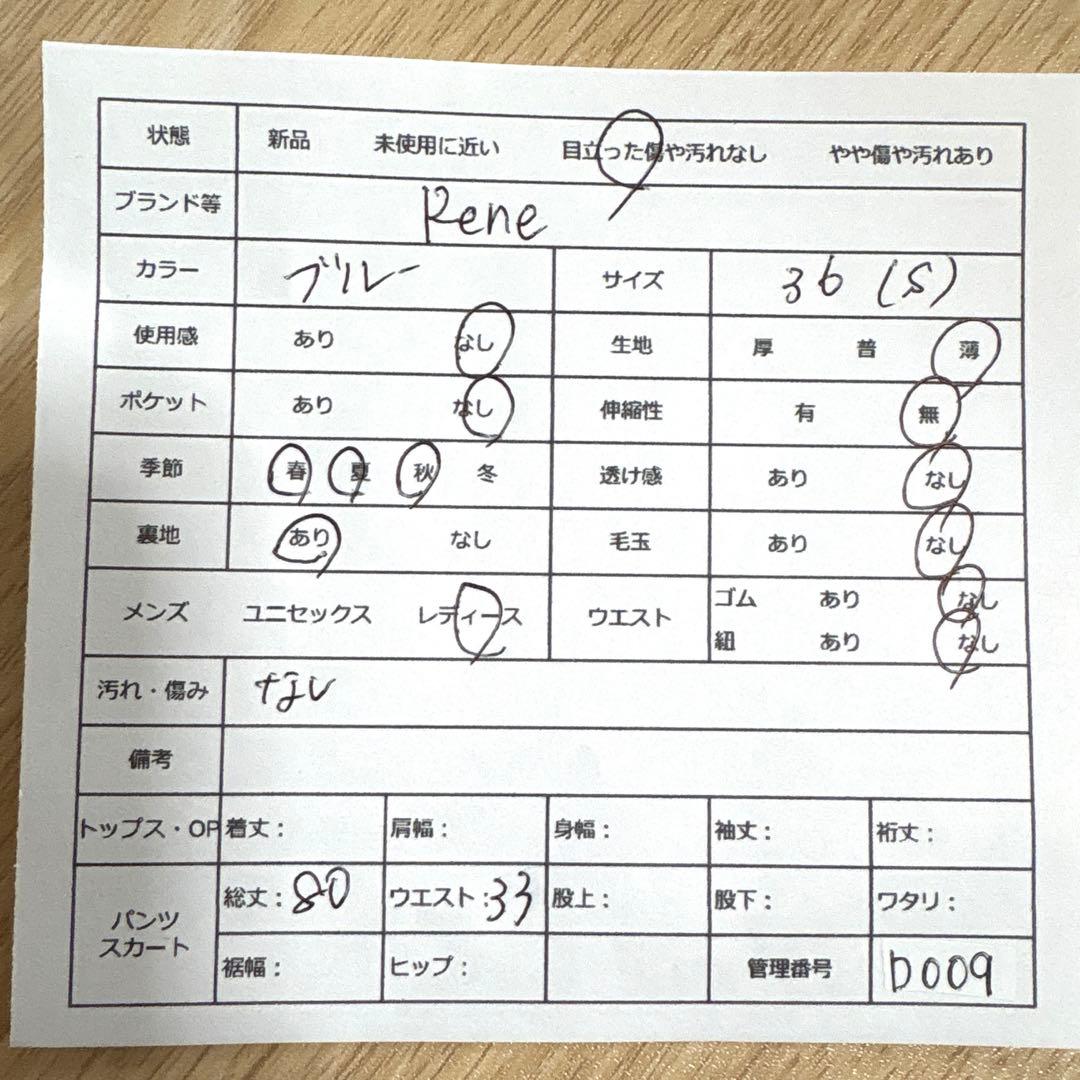 状態 新品 未使用に近い 目立った傷や汚れなし やや傷や汚れあり
ブランド等 Rene
カラー ブルー サイズ 36 (S)
使用感 あり なし 生地 厚 普 薄
ポケット あり なし 伸縮性 有 無
季節 春 夏 秋 冬 透け感 あり なし
裏地 あり なし 毛玉 あり なし
メンズ ユニセックス レディース ウエスト ゴム あり なし
紐 あり なし
汚れ・傷み なし
備考
トップス・OP 着丈: 肩幅: 身幅: 袖丈: 裄丈:
パンツ スカート 総丈:80 ウエスト:33 股上: 股下: ワタリ:
裾幅: ヒップ: 管理番号 D009